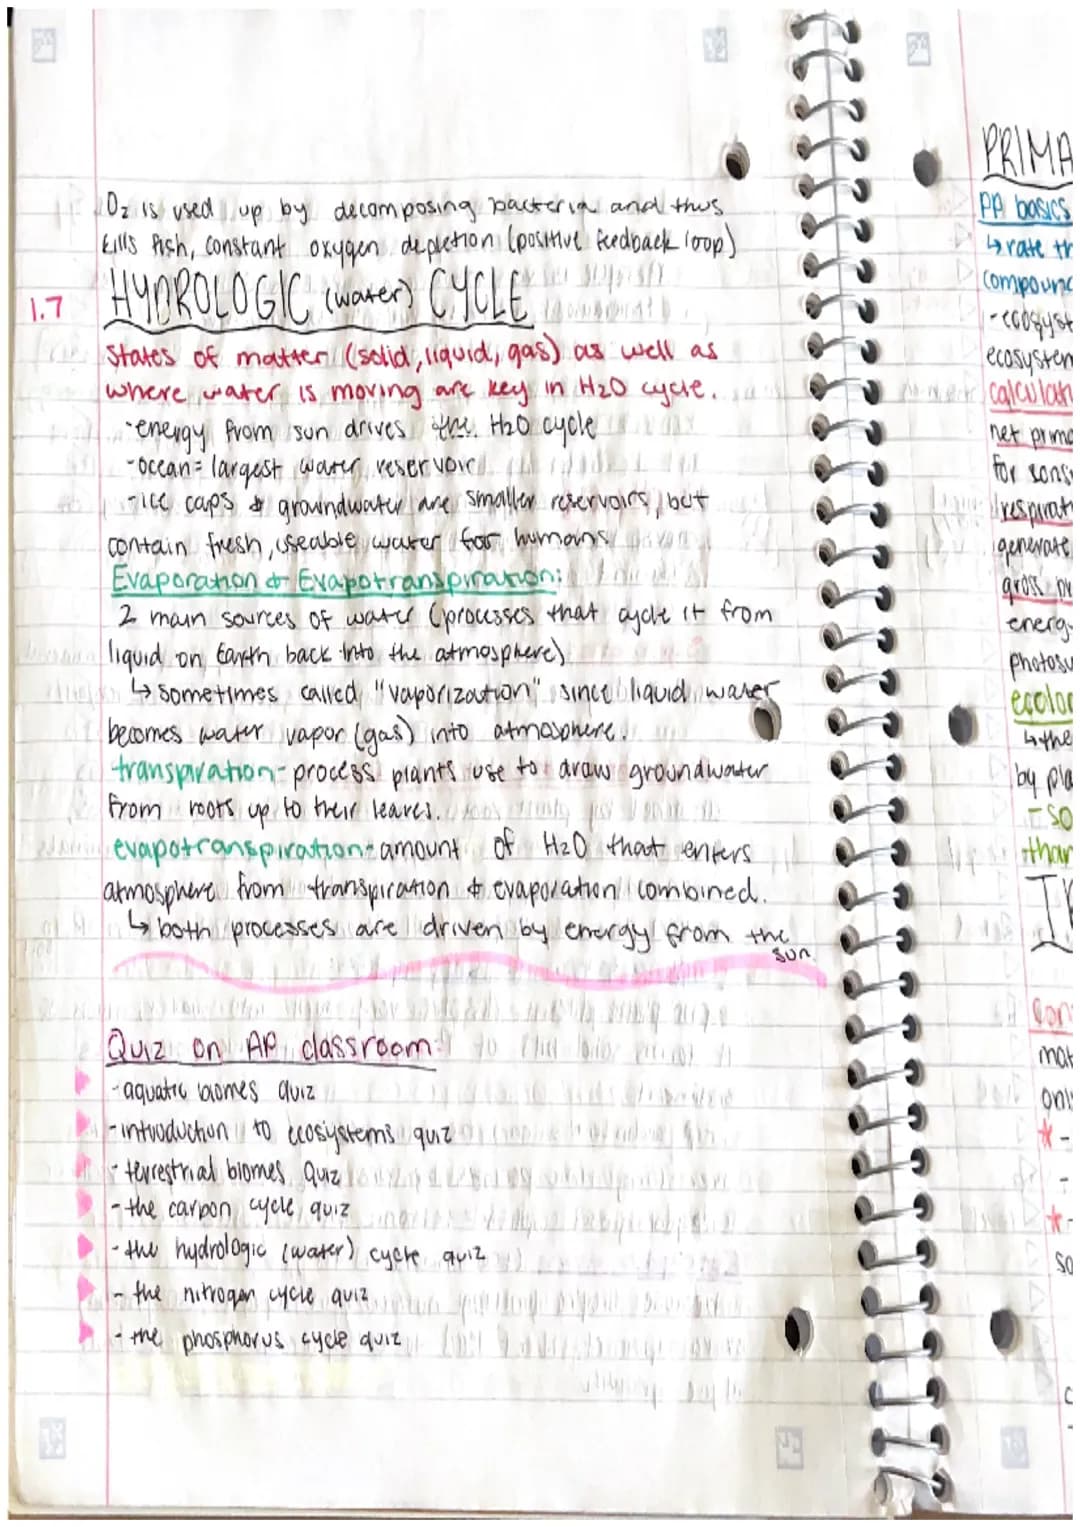 O2 is used up by decomposing bacteria and thus
kills fish, constant oxygen depletion (positive feedback loop)
1.7 HYDROLOGIC (water) CYCLE
States of matter (solid, liquid, gas) as well as
where water is moving are key in H2O cycle.
-energy from sun drives the H2O cycle
-ocean= largest water reservoir
-ice caps & groundwater are smaller reservoirs, but
contain fresh, useable water for humans
Evaporation & Evapotranspiration:
2 main sources of water (processes that cycle it from
liquid on Earth back into the atmosphere)
↳ sometimes called "vaporization" since liquid water
becomes water vapor (gas) into atmosphere.
transpiration- process plants use to draw groundwater
from roots up to their leaves.
evapotranspiration- amount of H2O that enters
atmosphere from transpiration & evaporation combined.
↳ both processes are driven by energy from the
sun.
Quiz on AP classroom:
-aquatic biomes quiz
-introduction to ecosystems quiz
-terrestrial biomes quiz
-the carbon cycle quiz
-the hydrologic (water) cycle quiz
-the nitrogen cycle quiz
-the phosphorus cycle quiz
PRIMA
PP basics
↳ rate th
compound
-ecosyst
ecosystem
calculati
net prima
for cons
respirat
generate
gross pr
energ
photosy
ecolog
↳ the
by pla
- so
than
Con
mat
only
* -
-
* -
so